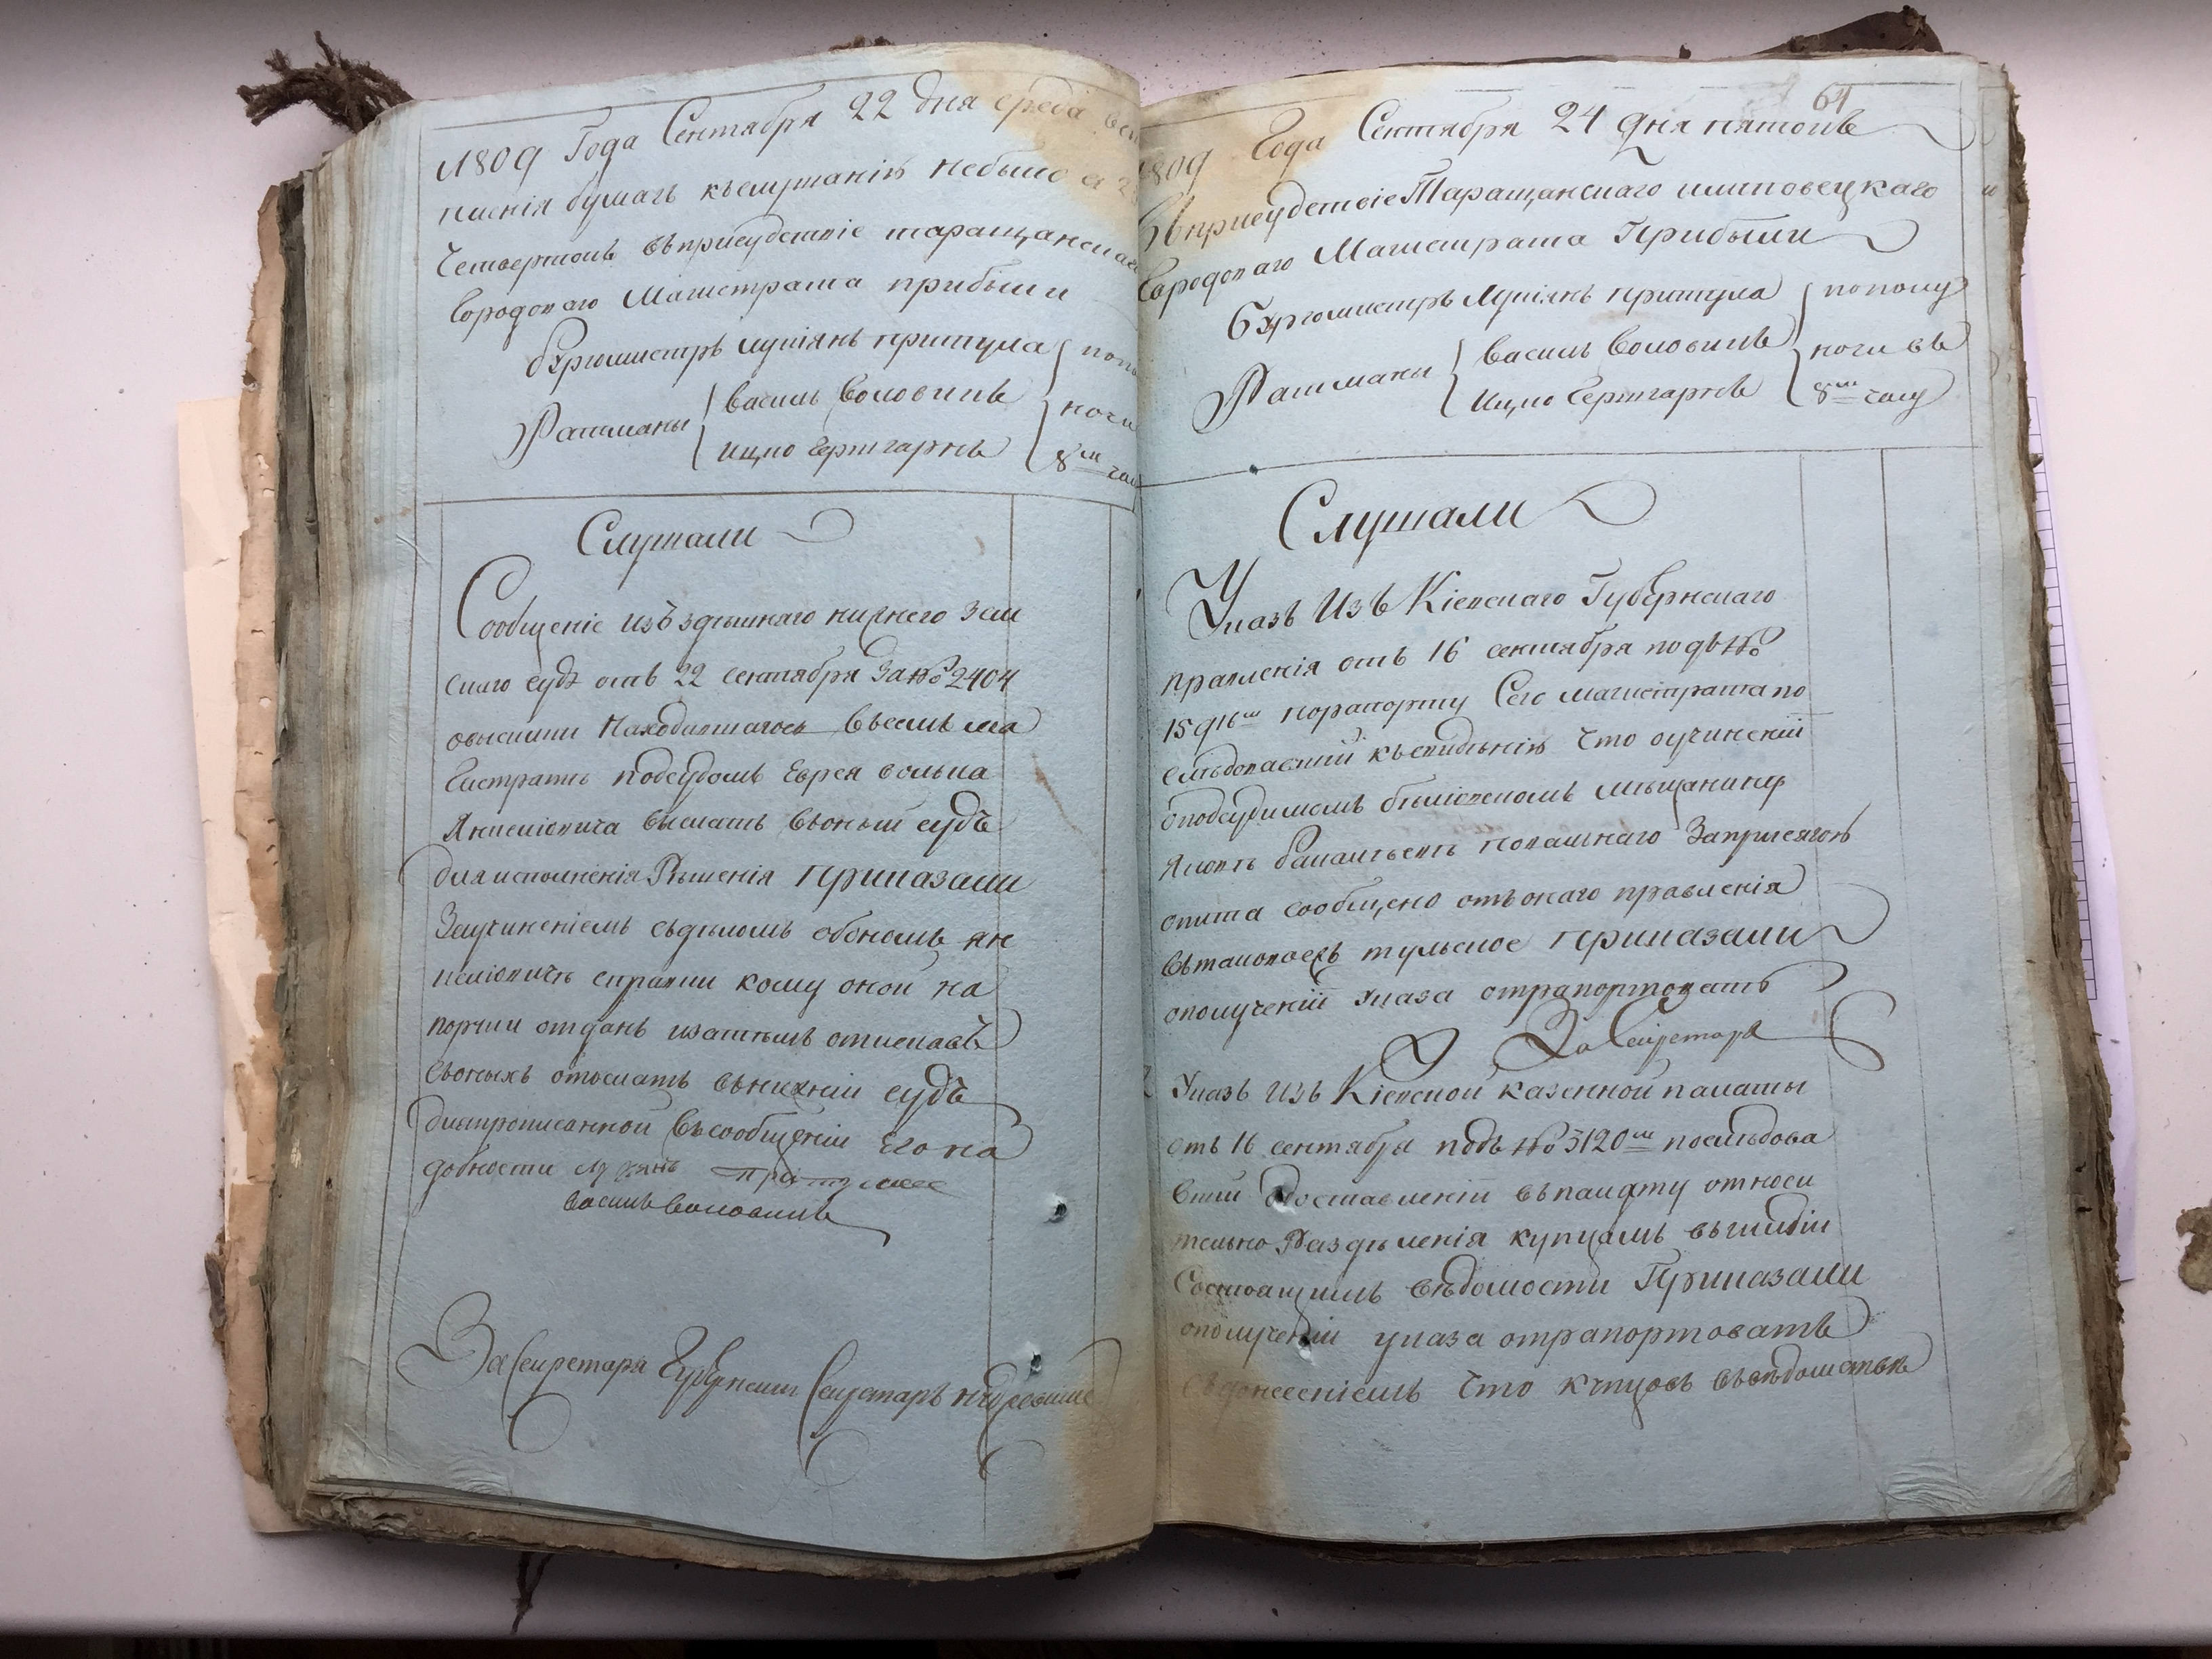 1809 Года Сентября 22 дня среда
писнія бумагъ къслушанію небыло а 2
Четвертокъ въприсудствіе таращанскаго
Городоваго Магистрата прибыли
бургомистръ Лукіянъ притула
Ратманы
василь Воловикъ
ицко Гершгарнъ
ночи
8м час
Слушали
Сообщеніе изъ здѣшнаго нижнего Зем
скаго суда отъ 22 сентября За №о 2404
овысилки Находившагося Въсемъ ма
Гистратѣ подсудомъ Еврея волька
Янкелiовича выслать Вьоный судъ
для исполненія Рѣшенія Приказали
Заучиненіемъ съдѣломъ обономъ ян
келіовичѣ справки кому оной на
поруки отданъ изатѣмъ отискавъ
Своныхъ отослать внижній судъ
дляпрописанной Въсообщеніи Его на
добности Лукянъ Притула
василь воловикъ
За Секретаря Губернски Секретаръ
64
1809 Года Сентября 24 дня пятокъ
Въприсудствіе Таращанскаго илиповецкаго
Городоваго Магистрата Прибыли
Бургомистръ Лукіянъ притула
Ратманы
василь Воловикъ
Ицко Гершгарнъ
пополу
ночи въ
8м часу
Слушали
Указъ Изъ Кіевскаго Губернскаго
правленія отъ 16 сентября подъ №о
порапорту Сего магистрата по
слѣдовавшій късвидѣнію Что оучинскій
оподсудимомъ бѣліовскомъ мѣщанинѣ
Яковѣ
опита сообщено отъонаго правленія
Вьтаковоежъ тульское Приказали
ополученіи Указа отрапортовать
За Секретаря
2
Указъ Изъ Кіевской казенной палаты
отъ 16 сентября подъ №о 3120м послѣдова
вшій одоставленіи въпалату относи
тельно Раздѣленія купцамъ въгилдіи
Состоящимъ вѣдомости Приказали
ополученіи указа отрапортовать
Съдонесеніемъ Что купцовъ въвѣдомствѣ